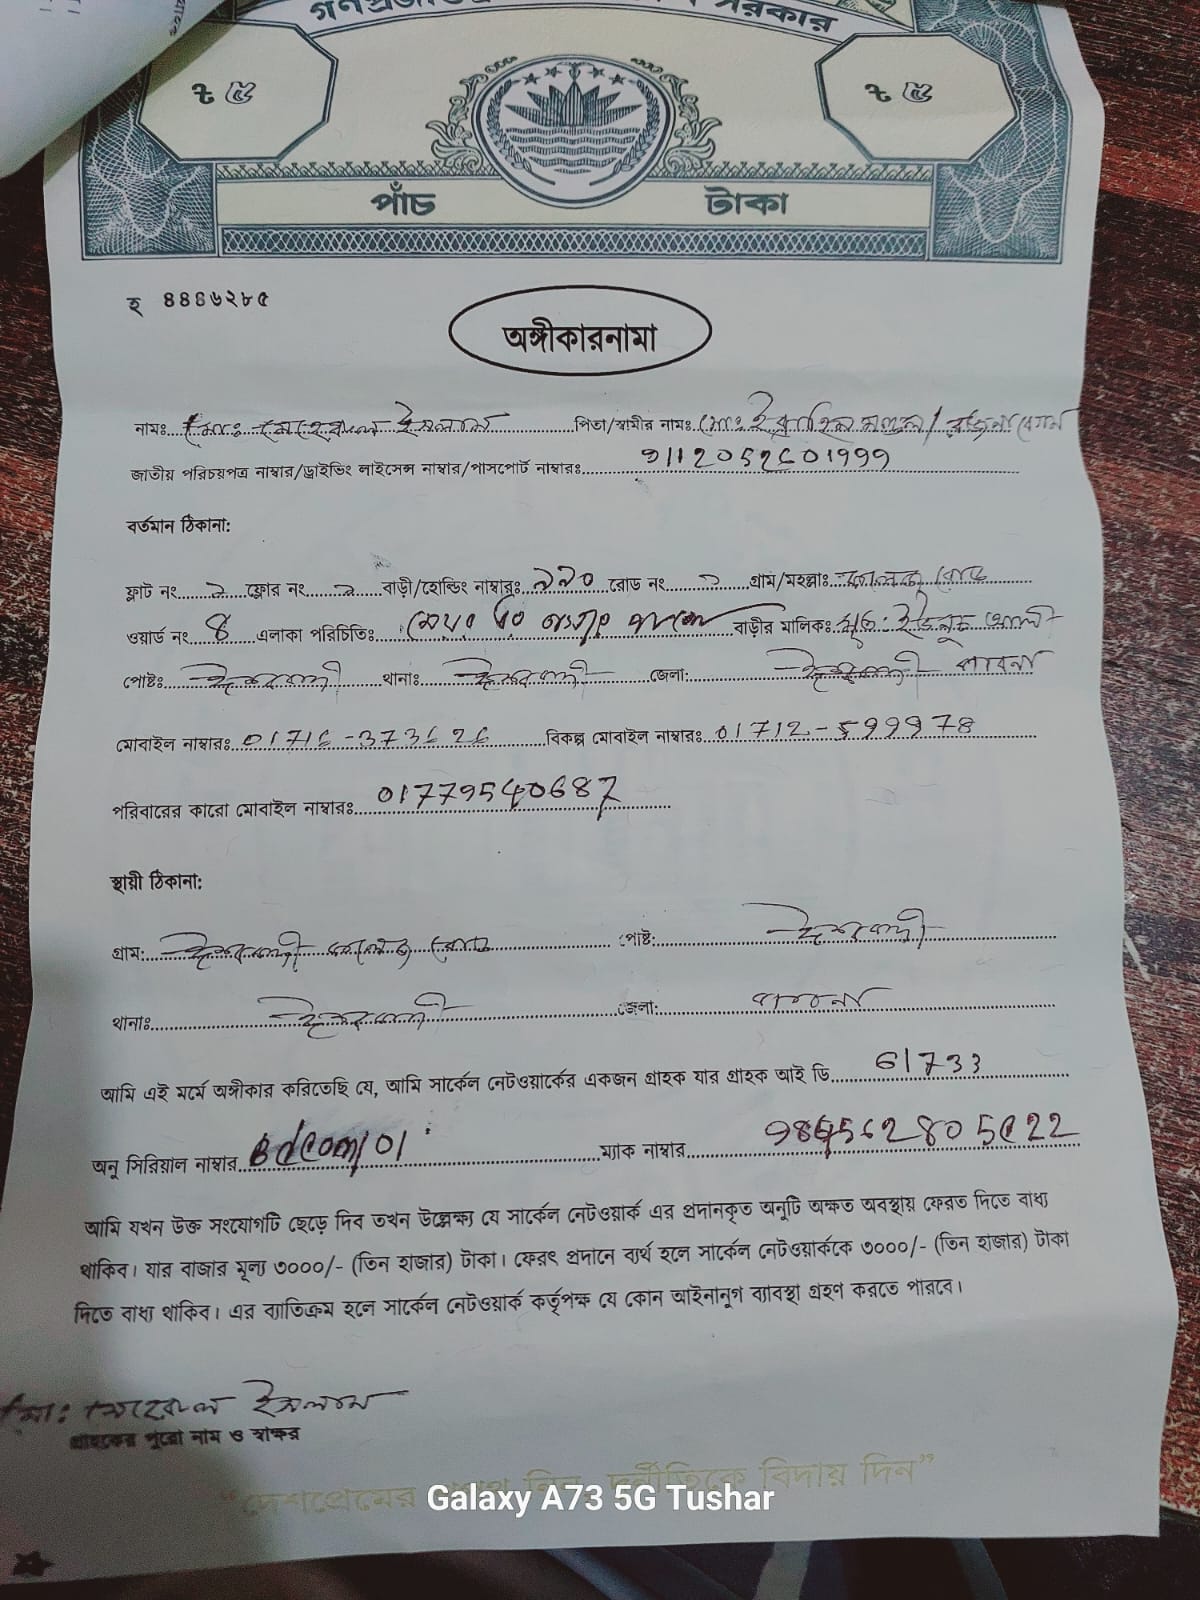 সরকার
৳ ৫ ৳ ৫
পাঁচ টাকা
অঙ্গীকারনামা
নামঃ মোঃ মেহেরাল ইসলাম পিতা/স্বামীর নামঃ মোঃ
জাতীয় পরিচয়পত্র নাম্বার/ড্রাইভিং লাইসেন্স নাম্বার/পাসপোর্ট নাম্বারঃ 9112052601999
বর্তমান ঠিকানা:
ফ্লাট নং ফ্লোর নং বাড়ী/হোল্ডিং নাম্বারঃ রোড নং গ্রাম/মহল্লাঃ কলেজ রোড
ওয়ার্ড নং ৪ এলাকা পরিচিতিঃ বাড়ীর মালিকঃ
পোষ্টঃ ঈশ্বরদী থানাঃ ঈশ্বরদী জেলা: পাবনা
মোবাইল নাম্বারঃ 01716-373626 বিকল্প মোবাইল নাম্বারঃ 01712-599978
পরিবারের কারো মোবাইল নাম্বারঃ 01779540687
স্থায়ী ঠিকানা:
গ্রাম: ঈশ্বরদী কলেজ রোড পোষ্ট: ঈশ্বরদী
থানাঃ ঈশ্বরদী জেলা: পাবনা
আমি এই মর্মে অঙ্গীকার করিতেছি যে, আমি সার্কেল নেটওয়ার্কের একজন গ্রাহক যার গ্রাহক আই ডি 61733
অনু সিরিয়াল নাম্বার Bdcom/01 ম্যাক নাম্বার
আমি যখন উক্ত সংযোগটি ছেড়ে দিব তখন উল্লেক্ষ্য যে সার্কেল নেটওয়ার্ক এর প্রদানকৃত অনুটি অক্ষত অবস্থায় ফেরত দিতে বাধ্য
থাকিব। যার বাজার মূল্য ৩০০০/- (তিন হাজার) টাকা। ফেরৎ প্রদানে ব্যর্থ হলে সার্কেল নেটওয়ার্ককে ৩০০০/- (তিন হাজার) টাকা
দিতে বাধ্য থাকিব। এর ব্যাতিক্রম হলে সার্কেল নেটওয়ার্ক কর্তৃপক্ষ যে কোন আইনানুগ ব্যাবস্থা গ্রহণ করতে পারবে।
মোঃ মেহেরাল ইসলাম
গ্রাহকের পুরো নাম ও স্বাক্ষর
“দেশপ্রেমের শপথ নিন, দুর্নীতিকে বিদায় দিন”
Galaxy A73 5G Tushar